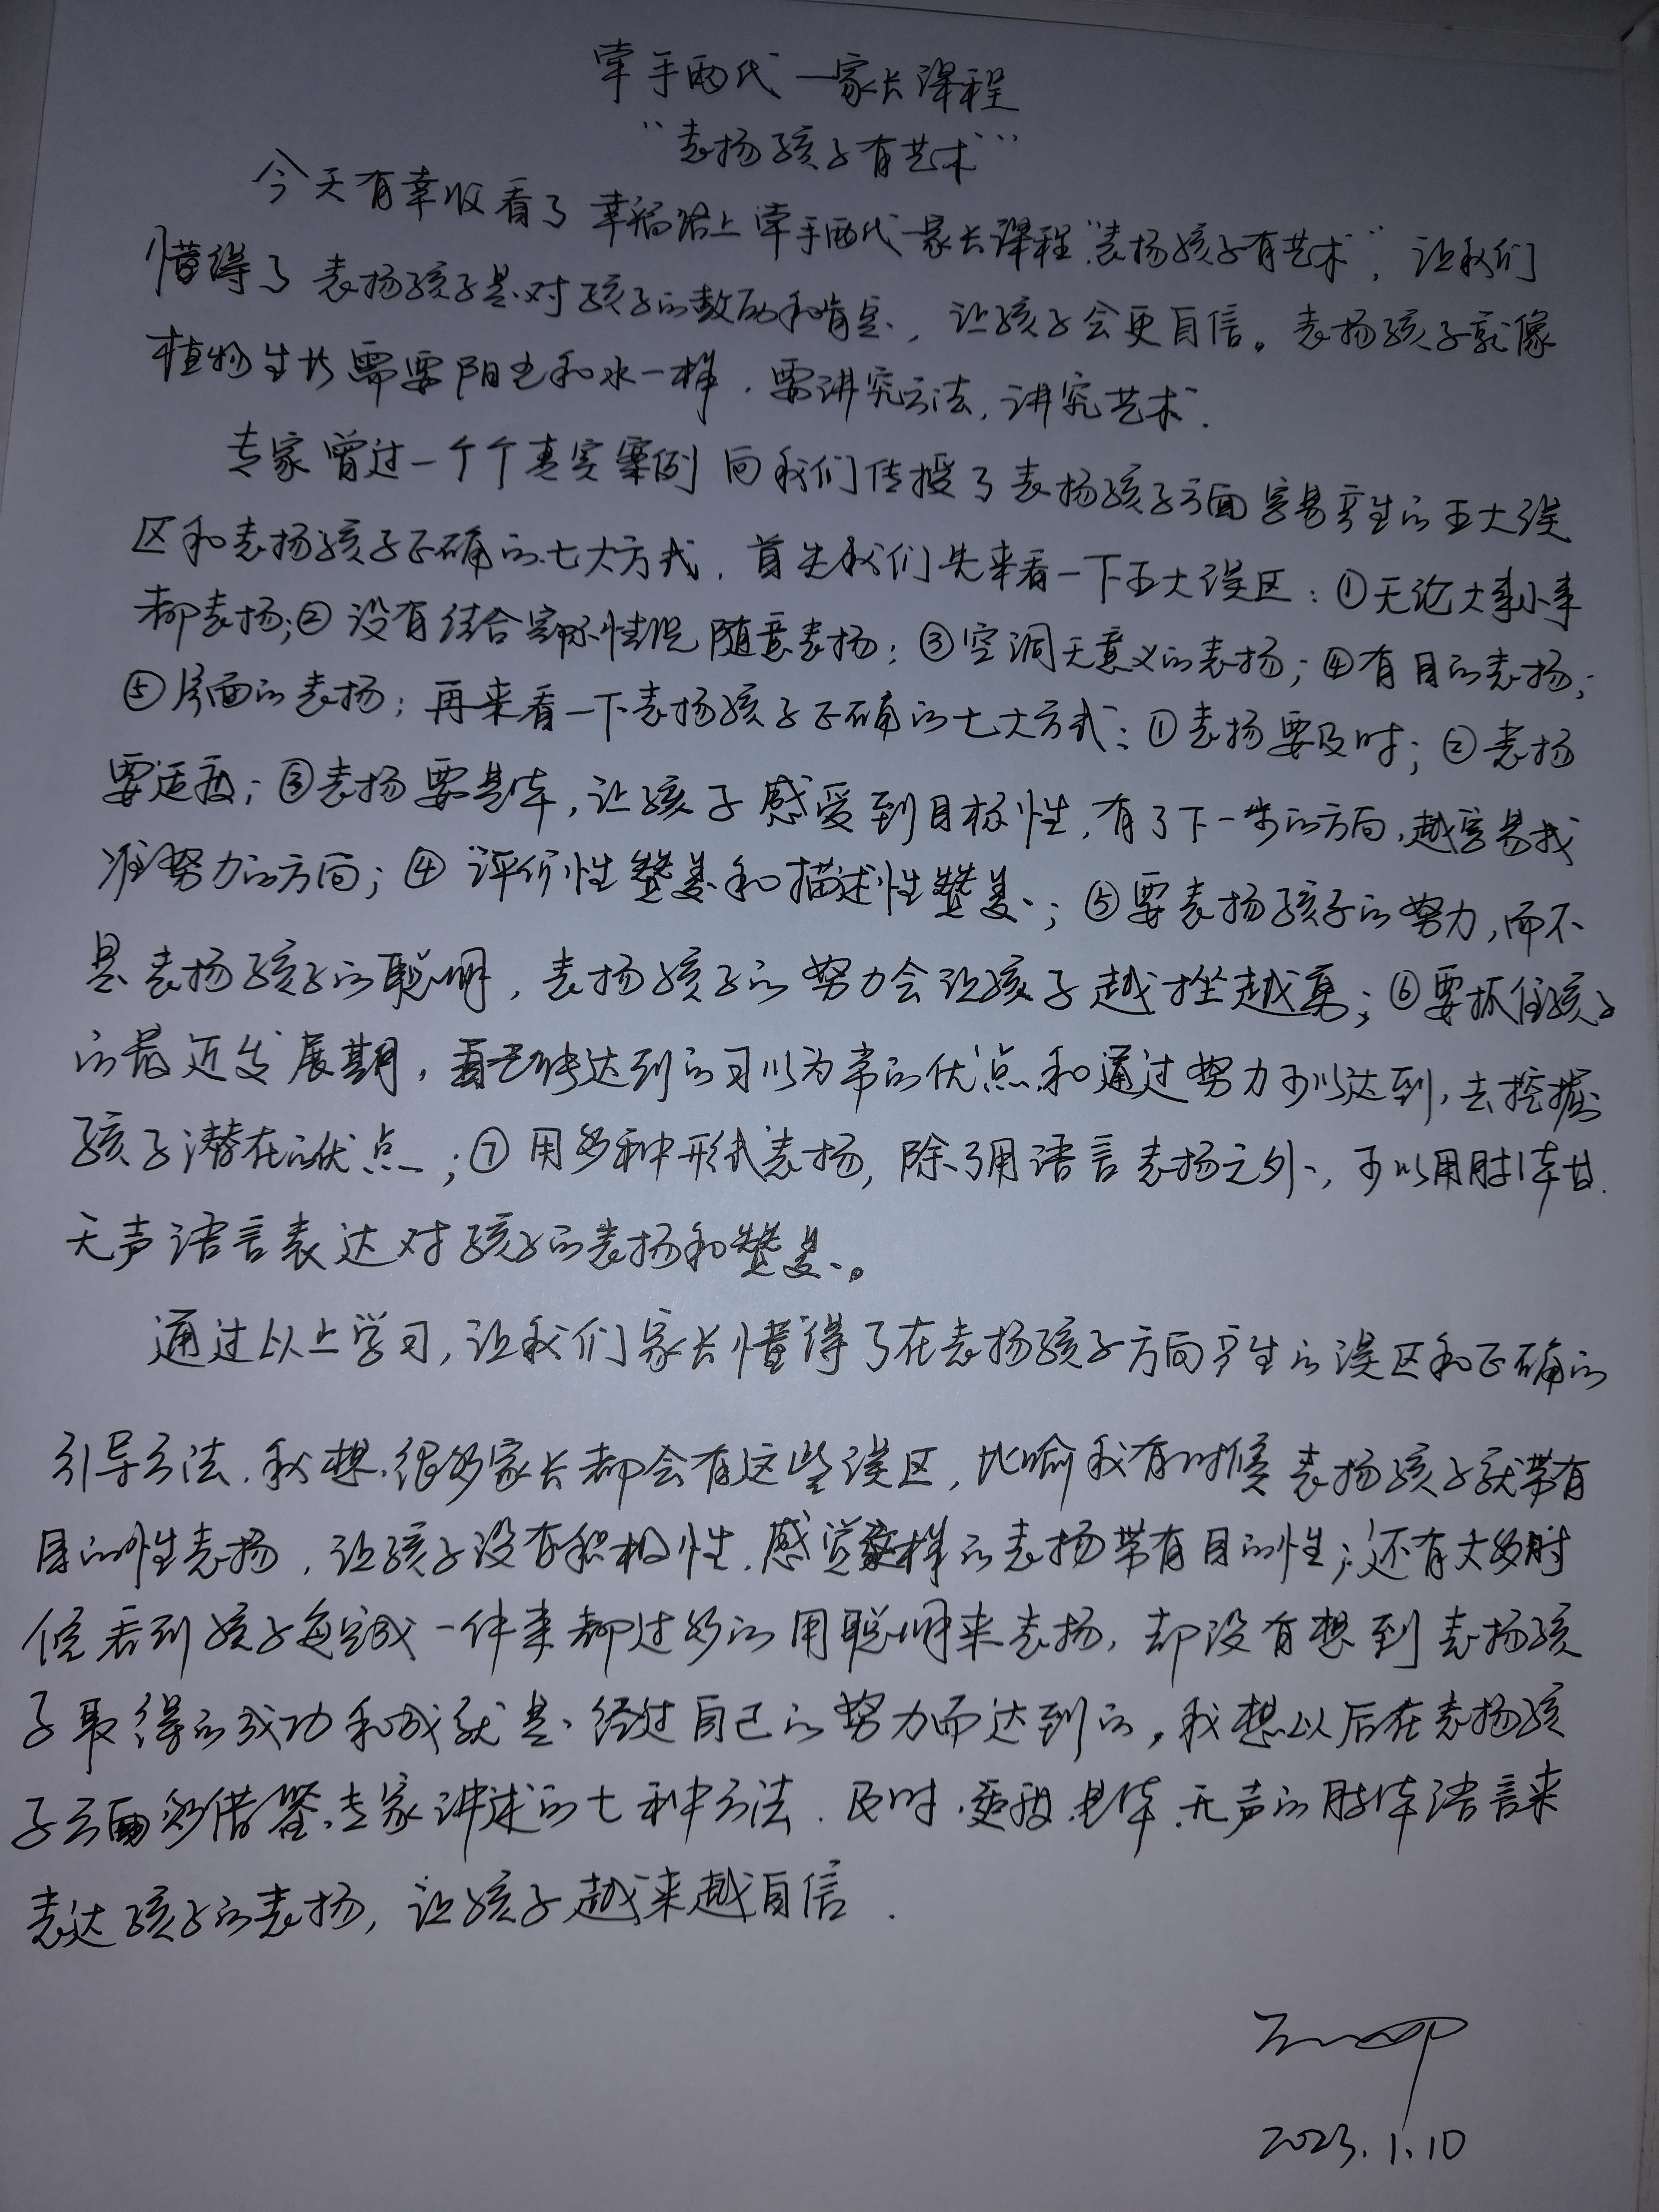 牵手两代—家长课程
“表扬孩子有艺术”
今天有幸收看了幸福路上牵手两代—家长课程“表扬孩子有艺术”，让我们
懂得了表扬孩子是对孩子的鼓励和肯定，让孩子会更自信。表扬孩子就像
植物生长需要阳光和水一样，要讲究方法，讲究艺术.
专家曾过一个个真实案例向我们传授了表扬孩子方面容易产生的五大误
区和表扬孩子正确的七大方式，首先我们先来看一下五大误区：①无论大事小事
都表扬；②没有结合实际情况随意表扬；③空洞无意义的表扬；④有目的表扬；
⑤片面的表扬；再来看一下表扬孩子正确的七大方式：①表扬要及时；②表扬
要适度；③表扬要具体，让孩子感受到目标性，有了下一步的方向，越容易找
准努力的方向；④评价性赞美和描述性赞美；⑤要表扬孩子的努力，而不
是表扬孩子的聪明，表扬孩子的努力会让孩子越挫越勇；⑥要抓住孩子
的最近发展期，看已能达到的习以为常的优点和通过努力可以达到，去挖掘
孩子潜在的优点；⑦用多种形式表扬，除了用语言表扬之外，可以用肢体
无声语言表达对孩子的表扬和赞美。
通过以上学习，让我们家长懂得了在表扬孩子方向产生的误区和正确的
引导方法.我想，很多家长都会有这些误区，比喻我有时候表扬孩子就带有
目的性表扬，让孩子没有积极性.感觉这样的表扬带有目的性；还有大多时
候看到孩子每完成一件事都过多的用聪明来表扬，却没有想到表扬孩
子取得的成功和成就是经过自己的努力而达到的，我想以后在表扬孩
子方面多借鉴专家讲述的七种方法.及时.适度.具体.无声的肢体语言来
表达孩子的表扬，让孩子越来越自信.
2023.1.10